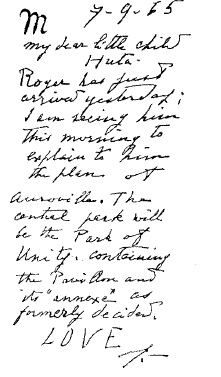 7-9-65
M
my dear little child
Huta.
Roger has just
arrived yesterday;
I am seeing him
this morning to
explain to him
the plan of
Auroville. The
central park will
be the Park of
Unity. containing
the Pavillon and
its "annexe" as
formerly decided.
LOVE